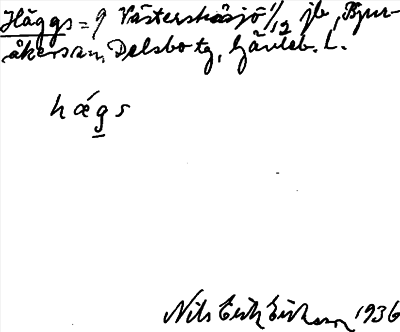 Häggs = 9 Västerstråsjö 1/12 jb, Bjur-
åkers sn, Delsbo tg, Gävleb. l.
hǽgs
Nils Erik Eriksson 1936